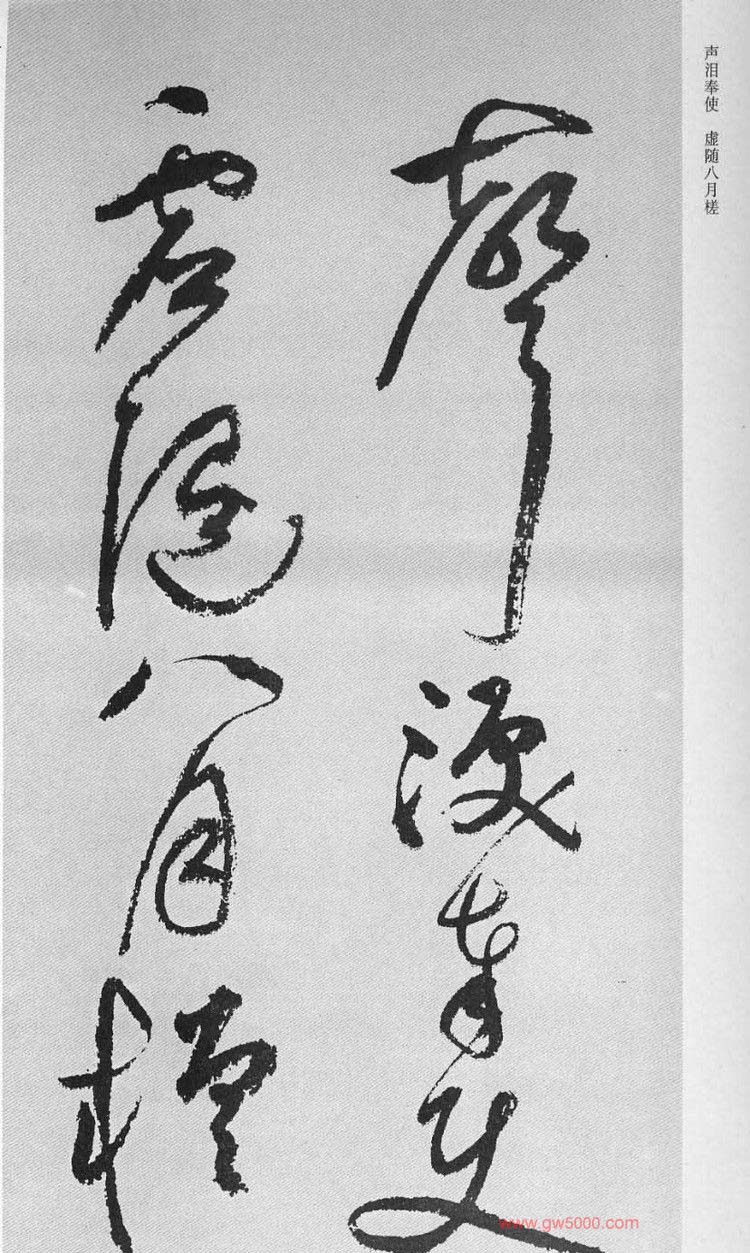 声泪奉使 虚随八月槎
聲淚奉使
虚随八月槎
www.gw5000.com